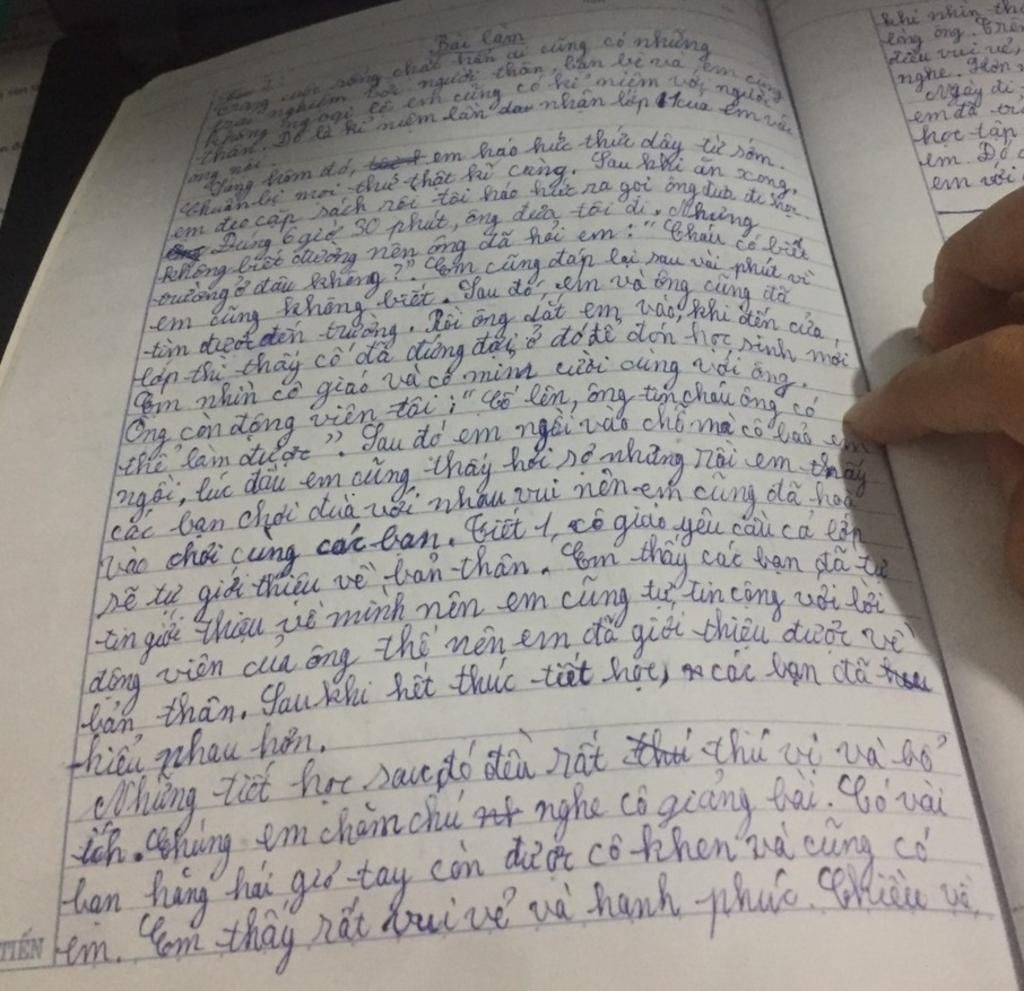 Bài làm
Trong cuộc sống chắc hẳn ai cũng có những
trải nghiệm với người thân, bạn bè và em cũng
không ngoại lệ em cũng có kỉ niệm với người
thân. Đó là kỉ niệm lần đầu nhận lớp 1 của em với
ông nội.
Sáng hôm đó, em háo hức thức dậy từ sớm.
Chuẩn bị mọi thứ thật kĩ càng. Sau khi ăn xong,
em đeo cặp sách rồi tôi háo hức ra gọi ông đưa đi học.
Đúng 6 giờ 30 phút, ông đưa tôi đi. Nhưng
không biết đường nên ông đã hỏi em: "Cháu có biết
trường ở đâu không?" Em cũng đáp lại sau vài phút vì
em cũng không biết. Sau đó, em và ông cũng đã
tìm được đến trường. Rồi ông dắt em vào, khi đến cửa
lớp thì thấy cô đã đứng đợi ở đó để đón học sinh mới
Em nhìn cô giáo và cô mỉm cười cùng với ông.
Ông còn động viên tôi: "Cố lên, ông tin cháu ông có
thể làm được". Sau đó em ngồi vào chỗ mà cô bảo em
ngồi, lúc đầu em cũng thấy hơi sợ nhưng rồi em thấy
các bạn chơi đùa với nhau vui nên em cũng đã hoà
vào chơi cùng các bạn. Tiết 1, cô giáo yêu cầu cả lớp
sẽ tự giới thiệu về bản thân. Em thấy các bạn đã tự
tin giới thiệu về mình nên em cũng tự tin cộng với lời
động viên của ông thế nên em đã giới thiệu được về
bản thân. Sau khi hết thúc tiết học, các bạn đã
hiểu nhau hơn.
Những tiết học sau đó đều rất thú vị và bổ
ích. Chúng em chăm chú nghe cô giảng bài. Có vài
bạn hăng hái giơ tay còn được cô khen và cũng có
em. Em thấy rất vui vẻ và hạnh phúc. Chiều về,
TIẾN
khi nhìn
lòng ông. Trên
điều vui vẻ,
nghe. Hơn
Ngày đi
em đã
học tập
em. Đó
em với